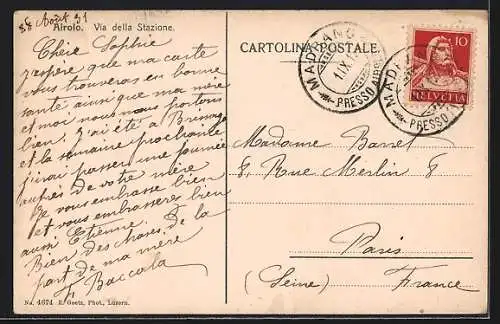 Août 31
Airolo. Via della Stazione.
Chère Sophie
j'espère que ma carte
vous trouveras en bonne
santé ainsi que ma mère
et moi nous nous portons
bien. J'ai été a
et la semaine prochaine
j'irai passer une journée
auprès de votre mère
Je vous embrasse bien
et vous embrasserez bien
aussi Etienne.
Bien des choses de la
part de ma mère
F. Baccala
No. 4674 E. Goetz, Phot., Luzern.
CARTOLINA POSTALE.
MADRANO
1.IX.
PRESSO AIROLO
10
HELVETIA
MADRANO
PRESSO
Madame Barret
8, Rue Merlin 8
Paris
(Seine) France